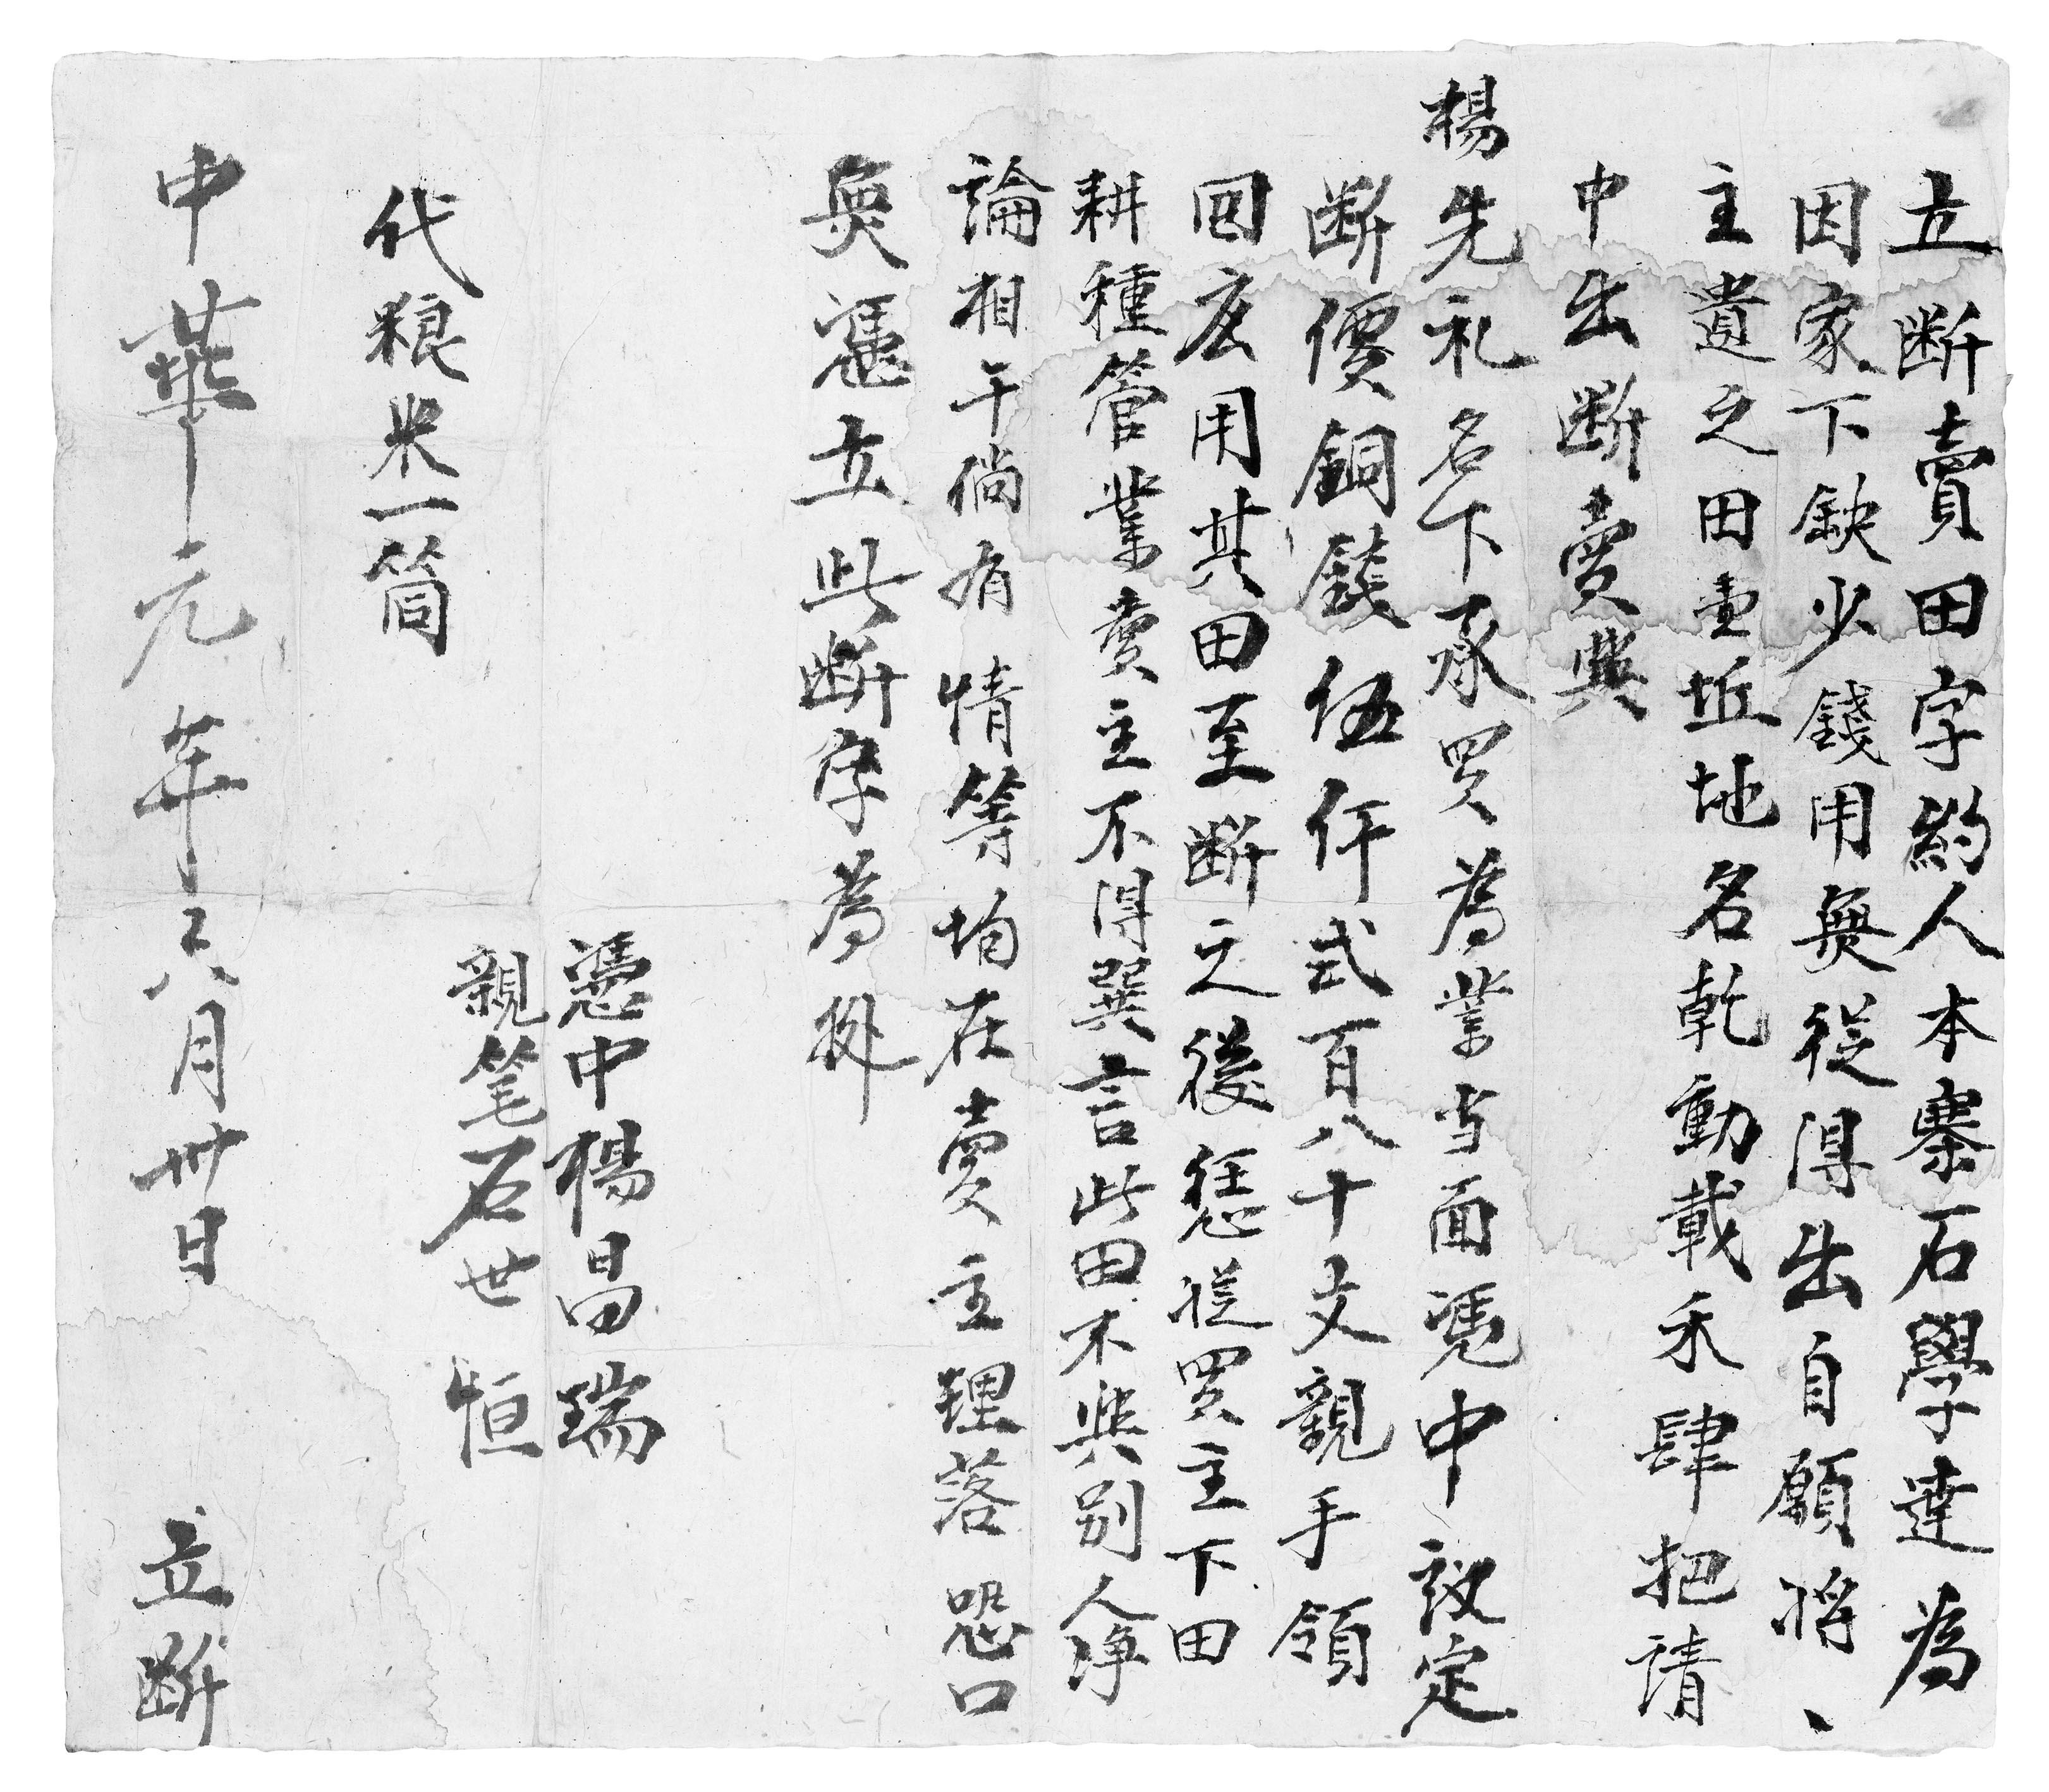 立断賣田字約人本寨石學達為
因家下缺少錢用無從得出自願将、
主遺之田壹坵地名乾動載禾肆把請
中出断賣與
楊先礼名下承買為業当面凴中議定
断價銅錢伍仟弍百八十文親手領
回応用其田至断之後恁從買主下田
耕種管業賣主不得異言此田不與别人净
論相干倘有情等均在賣主理落恐口
無憑立此断字為拠
憑中楊昌瑞
親笔石世恒
代粮米一筒
中華元年六月卅日 立断